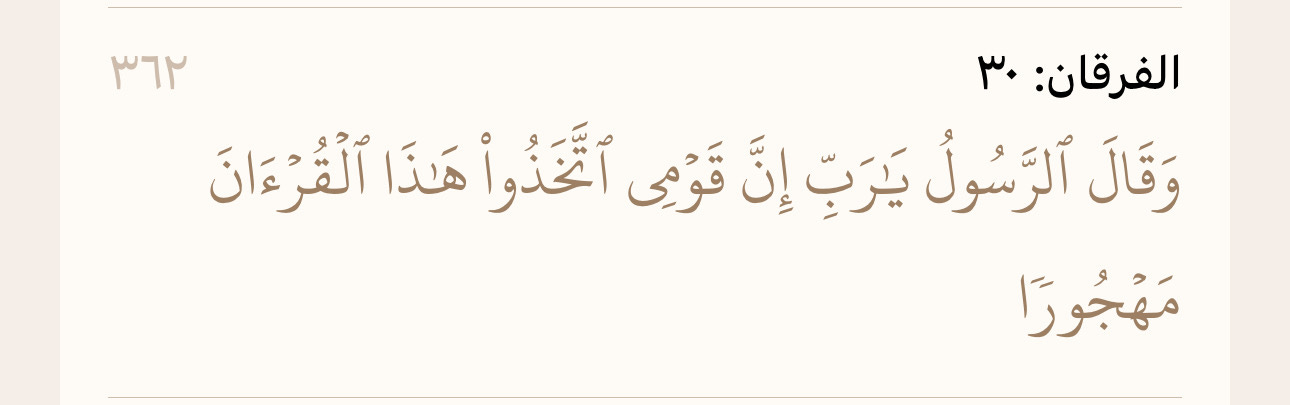 الفرقان: ٣٠
٣٦٢
وَقَالَ ٱلرَّسُولُ يَـٰرَبِّ إِنَّ قَوۡمِى ٱتَّخَذُواْ هَـٰذَا ٱلۡقُرۡءَانَ
مَهۡجُورٗا